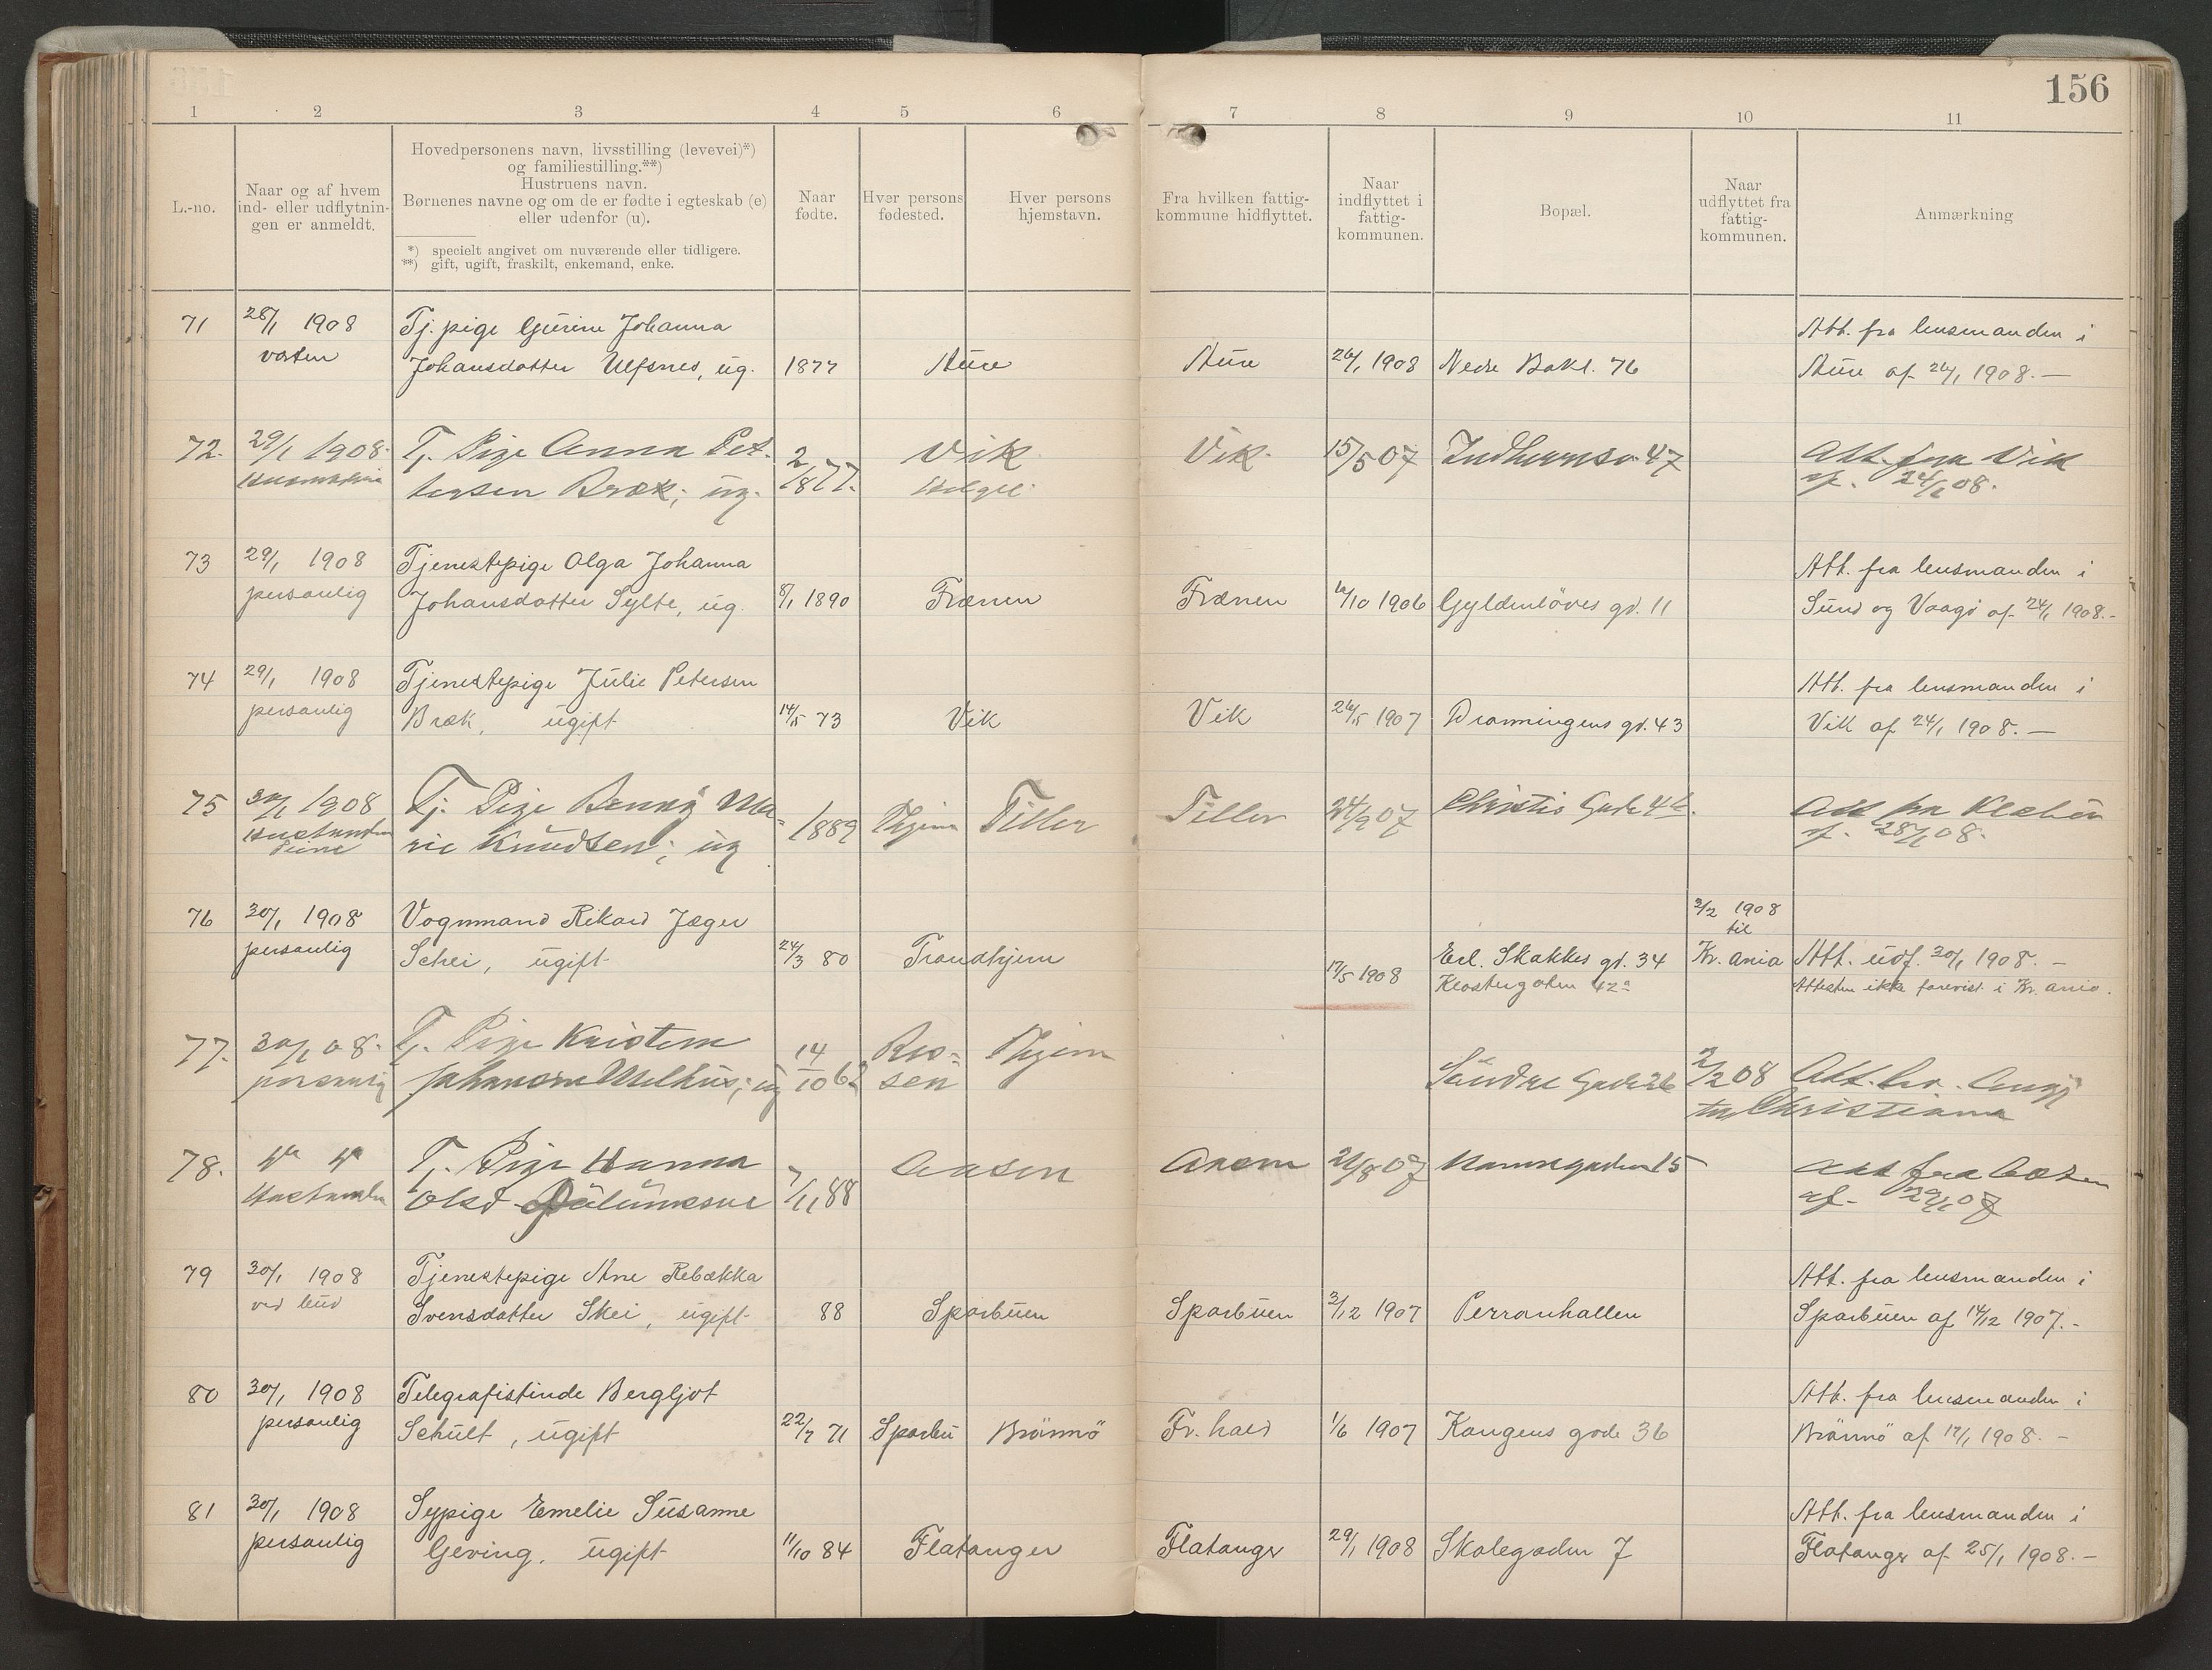 156
1 2 3 4 5 6 7 8 9 10 11
L.-no.
Naar og af hvem
ind- eller udflytnin-
gen er anmeldt.
Hovedpersonens navn, livsstilling (levevei)*)
og familiestilling.**)
Hustruens navn.
Børnenes navne og om de er fødte i egteskab (e)
eller udenfor (u).
*) specielt angivet om nuværende eller tidligere.
**) gift, ugift, fraskilt, enkemand, enke.
Naar
fødte.
Hver persons
fødested.
Hver persons
hjemstavn.
Fra hvilken fattig-
kommune hidflyttet.
Naar
indflyttet i
fattig-
kommunen.
Bopæl.
Naar
udflyttet fra
fattig-
kommunen.
Anmærkning
71 28/1 1908 Tj. pige Gurine Johanna Att. fra lensmanden i
Johansdatter Ulfsnes, ug. 1877 Aure Aure 26/1 1908 Nedre Bakl. 76 Aure af 26/1 1908.—
72. 29/1 1908. Tj. Pige Anna Pet- 2 Vik Vik 15/5 07 47 Att. fra Vik
tersen Bræk; ug. 1877. af. 24/1 08.
73 29/1 1908 Tjenestepige Olga Johanna Att. fra lensmanden i
personlig Johansdatter Sylte, ug. 8/1 1890 Frænen Frænen /10 1906 Gyldenløves gd. 11 Sund og Vaagø af 24/1 1908.-
74 29/1 1908 Tjenestepige Julie Petersen Att. fra lensmanden i
personlig Bræk, ugift 14/5 73 Vik Vik 26/5 1907 Dronningens gd. 43 Vik af 24/1 1908.—
75 30/1 1908 Tj. Pige Benny Ma- 1889 Thjem Tiller Tiller 24/9 07 Christis Gade 4 Att fra Klæbu
rie Knudsen; ug af. 28/1 08.
76 30/1 1908 Vognmand Rikard Jæger 3/2 1908
til
personlig Schei, ugift 24/3 80 Trondhjem 17/5 1908 Erl. Skakkes gd. 34 Kr. ania Att. udf. 30/1 1908.-
Klostergaten 42a Attesten ikke forevist i Kr. ania.
77. 30/1 08. Tj. Pige Kristine 14 Ris- Thjem
personlig Johansen Melhus; ug 10 sen Søndre Gade 26 2/2 08
Christiania
78. Tj. Pige Hanna 7 Aasen Aasen 07 15 Att fra Aasen
Olsd 11 88 af. 07
79 30/1 1908 Tjenestepige Ane Rebækka Att. fra lensmanden i
ved bud Svensdatter Skei, ugift 88 Sparbuen Sparbuen 3/12 1907 Perronhallen Sparbuen af 14/12 1907.-
80 30/1 1908 Telegrafistinde Bergljot Att. fra lensmanden i
personlig Schult, ugift 22/7 71 Sparbu Brønnø Fr. hald 1/6 1907 Kongens gade 36 Brønnø af 17/1 1908.-
81 30/1 1908 Sypige Emelie Susanne Att. fra lensmanden i
personlig Geving, ugift 11/10 84 Flatanger Flatanger 29/1 1908 Skolegaden 7 Flatanger af 25/1 1908.-